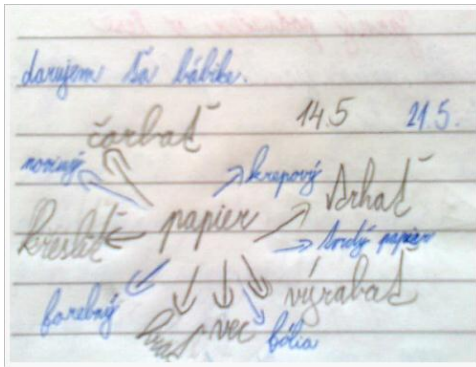 darujem ťa bábike.
čarbať 14.5 21.5.
noviný krepový
trhať
kresliť papier
tvrdý papier
farebný výrabať
hrať vec fólia